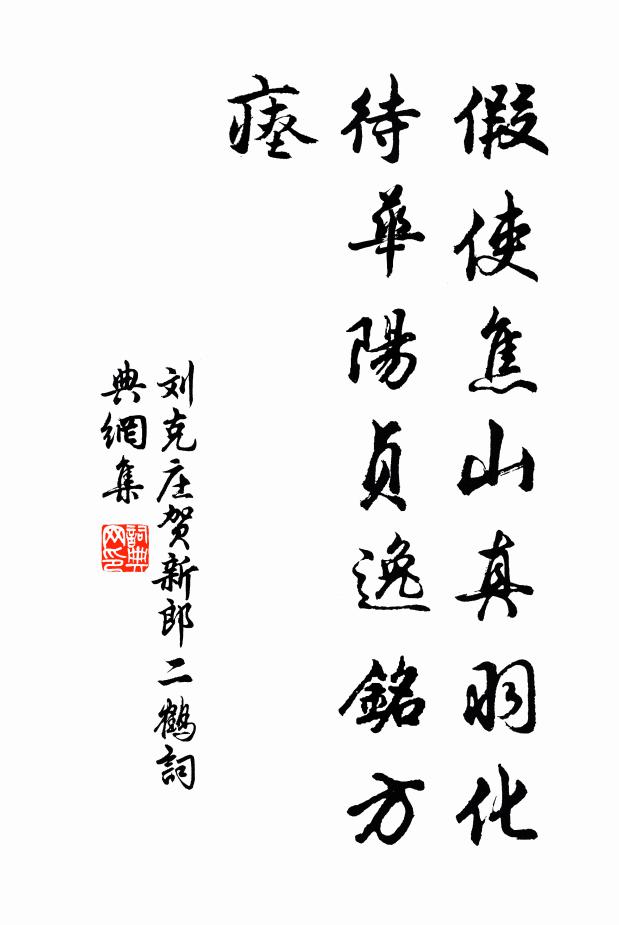 假使焦山真羽化
待華陽貞逸銘方
瘗
刘克庄贺新郎二鶴詞
典網集
詞典
网印